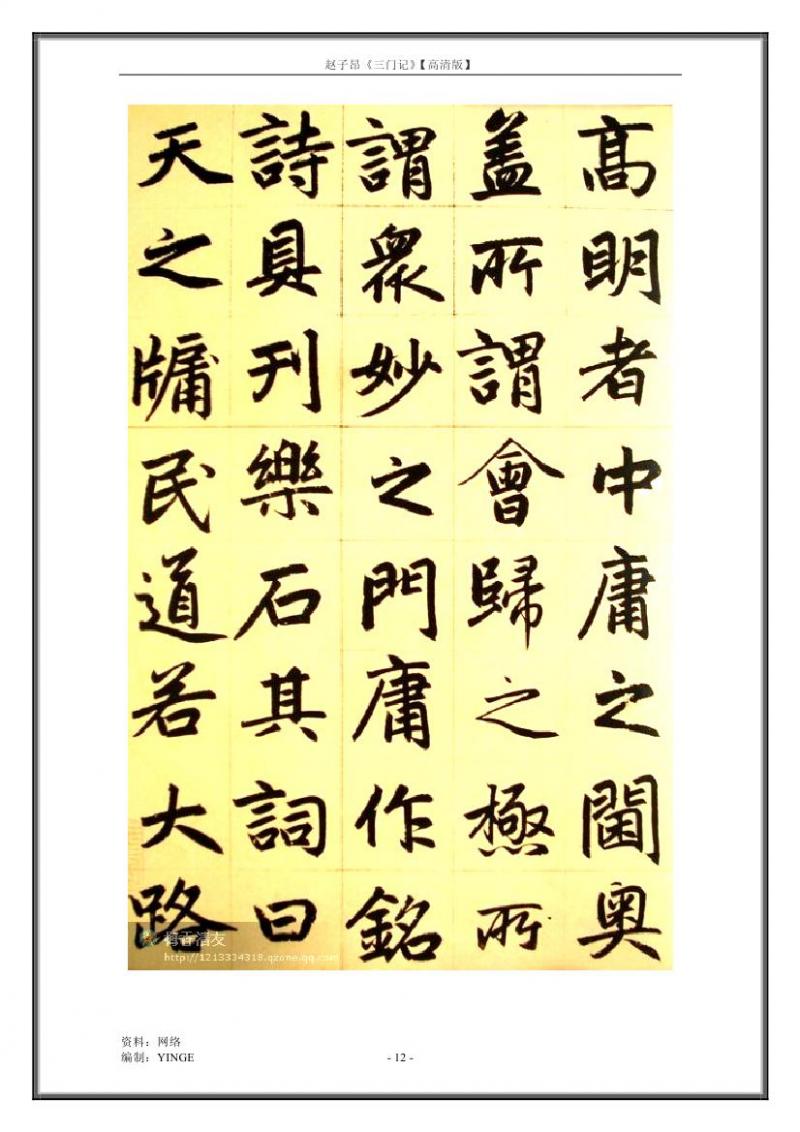 赵子昂《三门记》【高清版】
高明者中庸之閫奥
盖所謂會歸之極所
謂衆妙之門庸作銘
詩具刊樂石其詞曰
天之牖民道若大路
梅香清友
http://1213334318.qzone.qq.com
资料：网络
编制：YINGE
- 12 -